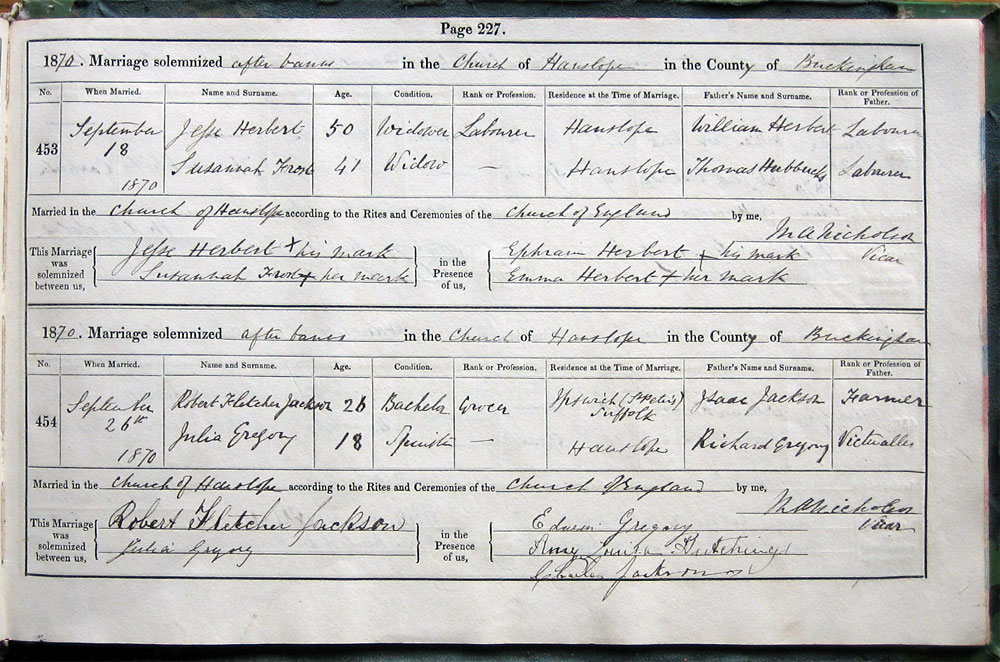 Page 227.
1870. Marriage solemnized after banns in the Church of Hanslope in the County of Buckingham
No. When Married. Name and Surname. Age. Condition. Rank or Profession. Residence at the Time of Marriage. Father's Name and Surname. Rank or Profession of Father.
453 September 18 1870 Jesse Herbert 50 Widower Labourer Hanslope William Herbert Labourer
Susannah Frost 41 Widow — Hanslope Thomas Hubbucks Labourer
Married in the Church of Hanslope according to the Rites and Ceremonies of the Church of England by me,
M A Nicholson
Vicar
This Marriage was solemnized between us, Jesse Herbert X his mark in the Presence of us, Ephraim Herbert X his mark
Susannah Frost X her mark Emma Herbert X her mark
1870. Marriage solemnized after banns in the Church of Hanslope in the County of Buckingham
No. When Married. Name and Surname. Age. Condition. Rank or Profession. Residence at the Time of Marriage. Father's Name and Surname. Rank or Profession of Father.
454 September 26th 1870 Robert Fletcher Jackson 26 Bachelor Grocer Ipswich Suffolk Isaac Jackson Farmer
Julia Gregory 18 Spinster — Hanslope Richard Gregory Victualler
Married in the Church of Hanslope according to the Rites and Ceremonies of the Church of England by me,
M A Nicholson
Vicar
This Marriage was solemnized between us, Robert Fletcher Jackson in the Presence of us, Edwin Gregory
Julia Gregory Amy Louisa Hutchings
Charles Jackson